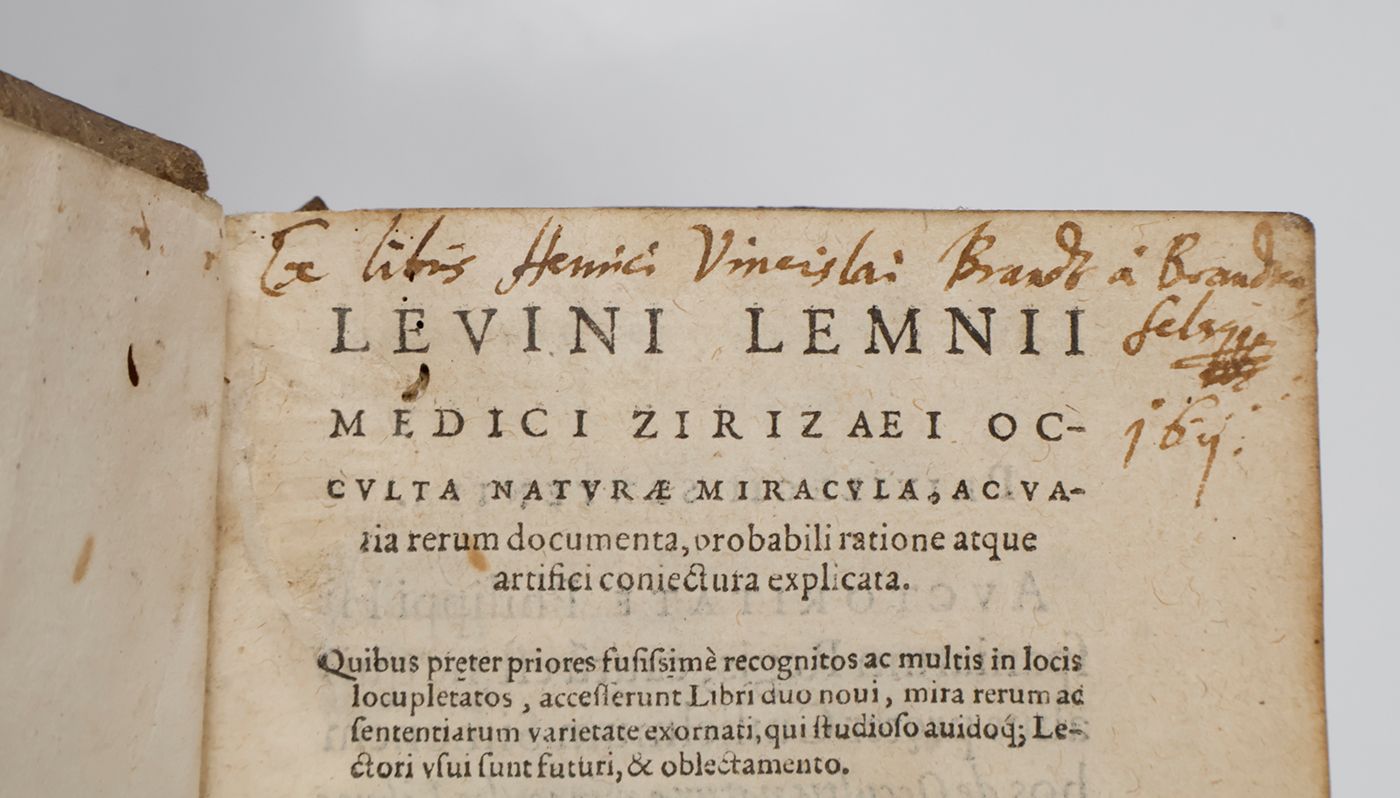 Ex libris Henrici Vinceslai Brandt à
LEVINI LEMNII
MEDICI ZIRIZAEI OC-
CVLTA NATVRÆ MIRACVLA, AC VA-
ria rerum documenta, probabili ratione atque
artifici coniectura explicata.
Quibus pręter priores fusiſsimè recognitos ac multis in locis
locupletatos, acceſſerunt Libri duo noui, mira rerum ac
ſententiarum varietate exornati, qui ſtudioſo auidoq́; Le-
ctori vſui ſunt futuri, & oblectamento.